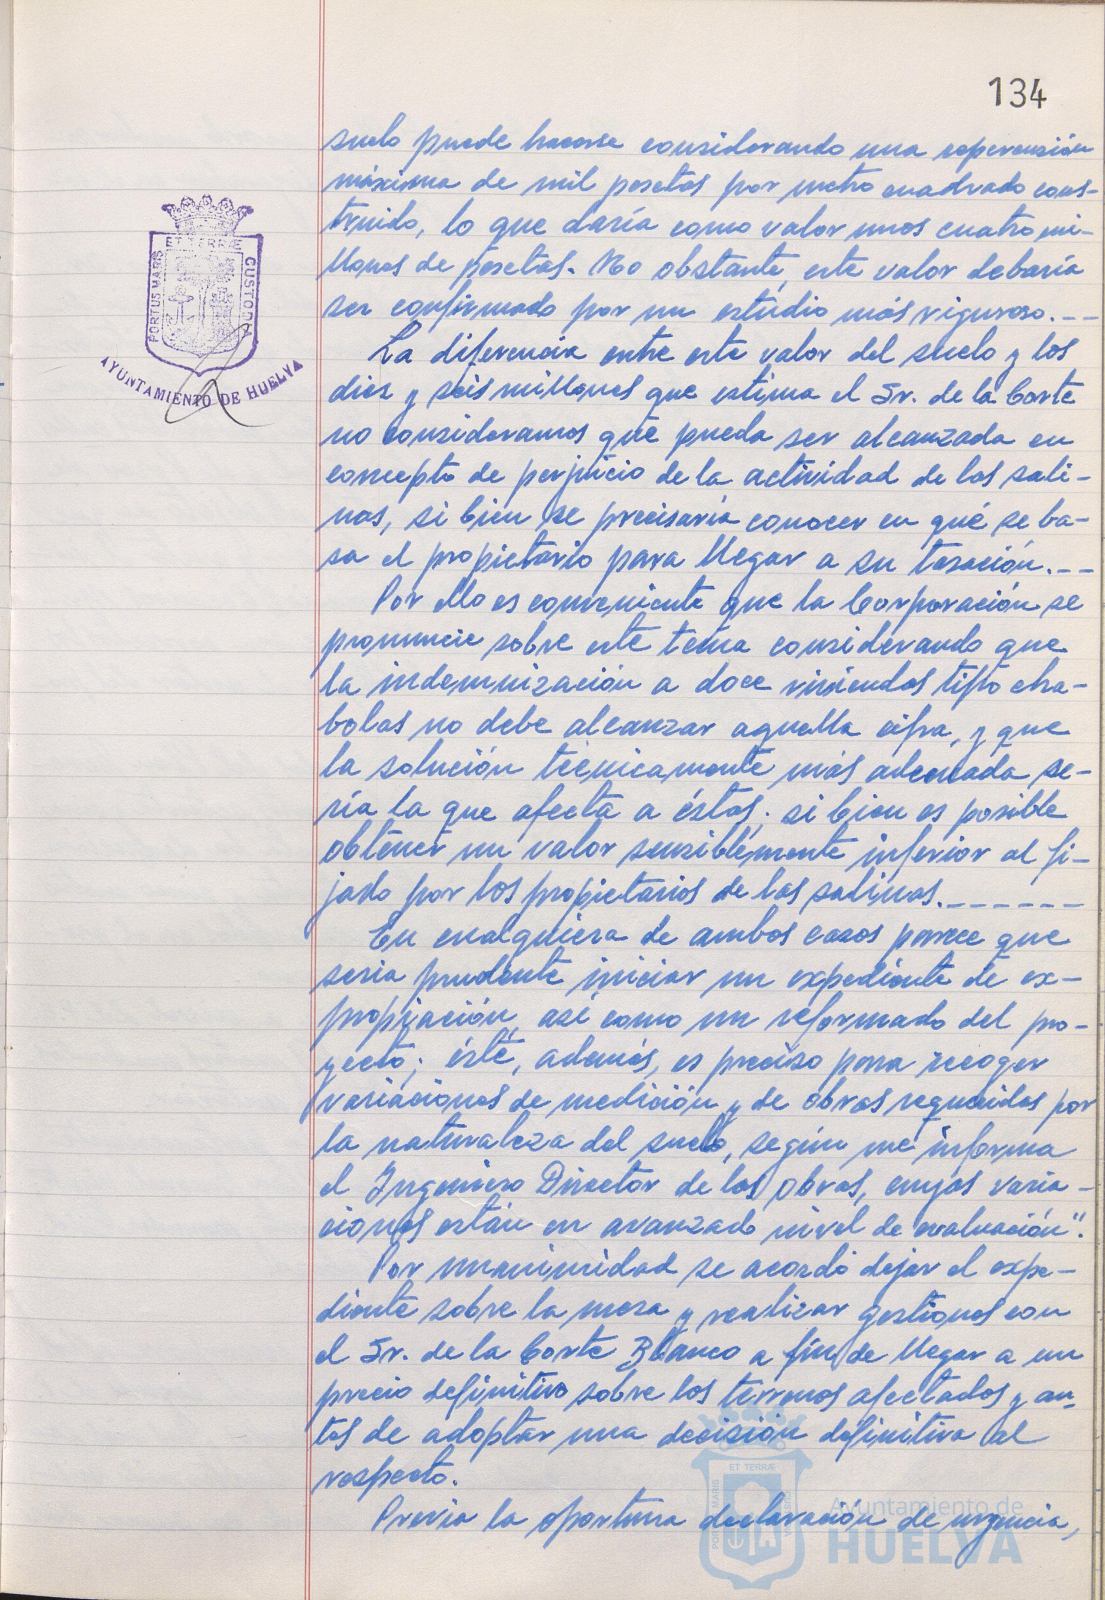 134
suelo puede hacerse considerando una repercusión
máxima de mil pesetas por metro cuadrado cons-
truido, lo que daría como valor unos cuatro mi-
llones de pesetas. No obstante, este valor debería
ser confirmado por un estudio más riguroso.---
La diferencia entre este valor del suelo y los
diez y seis millones que estima el Sr. de la Corte
no consideramos que pueda ser alcanzada en
concepto de perjuicio de la actividad de las sali-
nas, si bien se precisaría conocer en qué se ba-
sa el propietario para llegar a su tasación.---
Por ello es conveniente que la Corporación se
pronuncie sobre este tema considerando que
la indemnización a doce viviendas tipo cha-
bolas no debe alcanzar aquella cifra, y que
la solución técnicamente más adecuada se-
ría la que afecta a éstas; si bien es posible
obtener un valor sensiblemente inferior al fi-
jado por los propietarios de las salinas.-------
En cualquiera de ambos casos parece que
sería prudente iniciar un expediente de ex-
propiación, así como un reformado del pro-
yecto; éste, además, es preciso para recoger
variaciones de medición y de obras requeridas por
la naturaleza del suelo, según me informa
el Ingeniero Director de las obras, cuyas varia-
ciones están en avanzado nivel de evaluación".
Por unanimidad se acordó dejar el expe-
diente sobre la mesa y realizar gestiones con
el Sr. de la Corte Blanco a fin de llegar a un
precio definitivo sobre los terrenos afectados y an-
tes de adoptar una decisión definitiva al
respecto.
Previa la oportuna declaración de urgencia,
PORTUS MARIS ET TERRÆ CUSTODIA
AYUNTAMIENTO DE HUELVA
PORTUS MARIS ET TERRÆ CUSTODIA
Ayuntamiento de
HUELVA